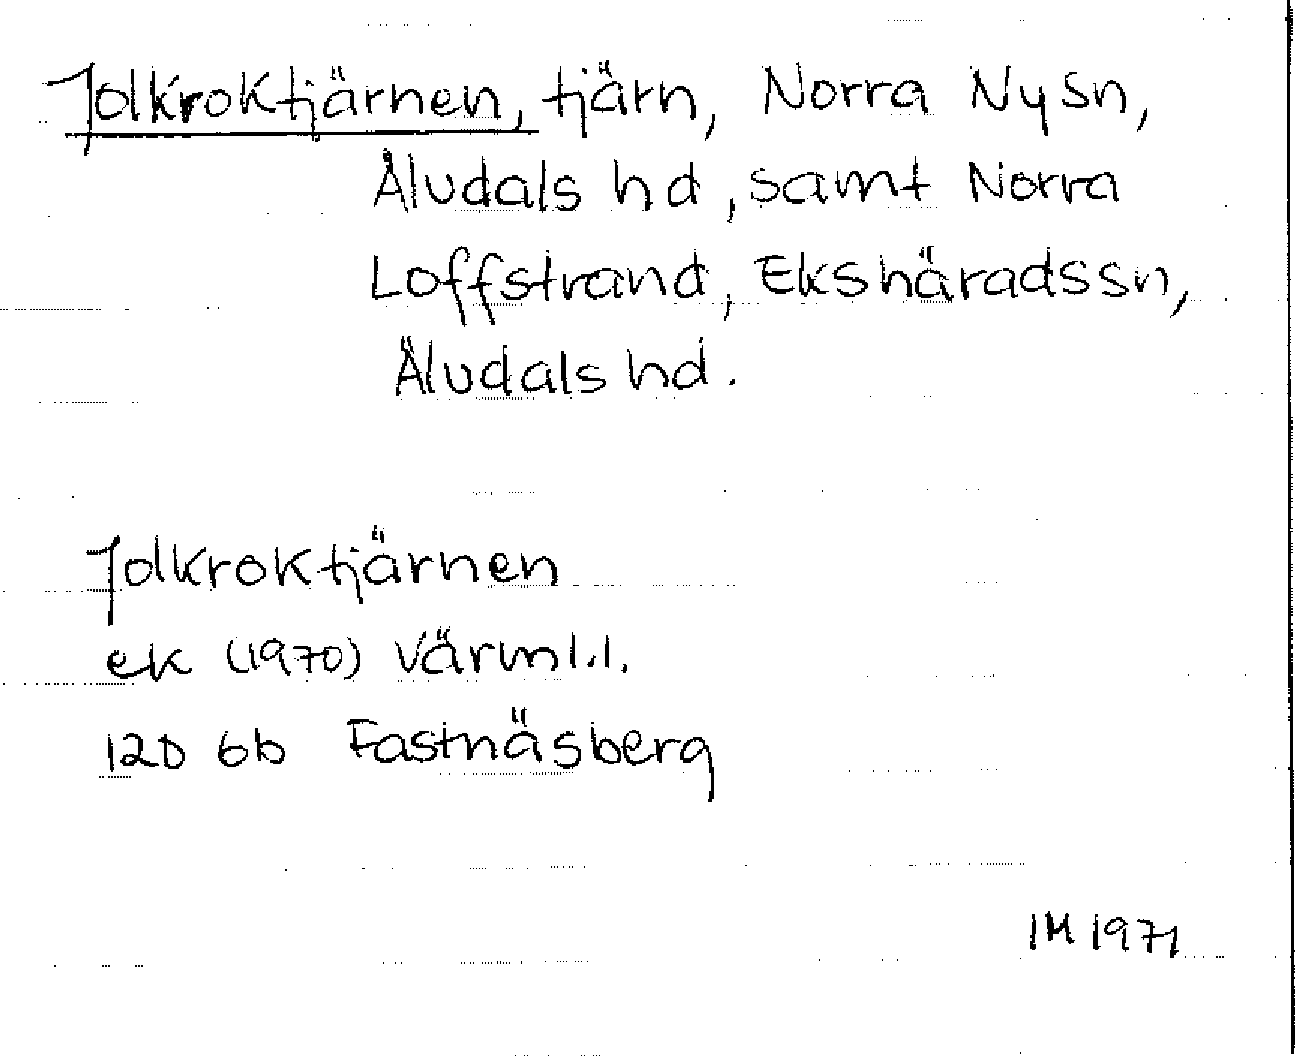 Jolkroktjärnen, tjärn, Norra Ny sn,
Älvdals hd, samt Norra
Loffstrand, Ekshäradssn,
Älvdals hd.
Jolkroktjärnen
ek (1970) Värml.l.
12D 6b Fastnäsberg
IM 1971